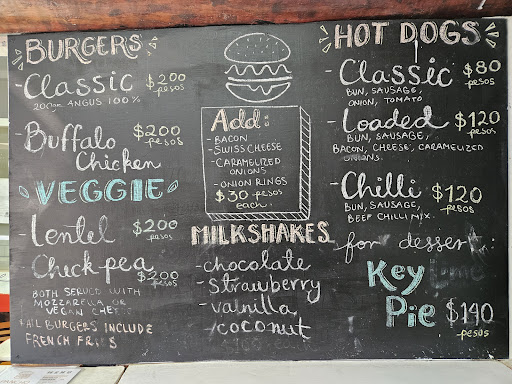 BURGERS
-Classic $200 pesos
200gm ANGUS 100%
-Buffalo Chicken $200 pesos
VEGGIE
-Lentel $200 pesos
-Chick pea $200 pesos
BOTH SERVED WITH
MOZZARELLA OR
VEGAN CHEESE
*ALL BURGERS INCLUDE
FRENCH FRIES
Add:
-BACON
-SWISS CHEESE
-CARAMELIZED
ONIONS
-ONION RINGS
$30 pesos
each.
MILKSHAKES
-chocolate
-strawberry
-vainilla
-coconut
HOT DOGS
-Classic $80 pesos
BUN, SAUSAGE,
ONION, TOMATO
-Loaded $120 pesos
BUN, SAUSAGE,
BACON, CHEESE, CARAMELIZED
ONIONS.
-Chilli $120 pesos
BUN, SAUSAGE,
BEEF CHILLI MIX.
for dessert:
Key
Pie $140 pesos